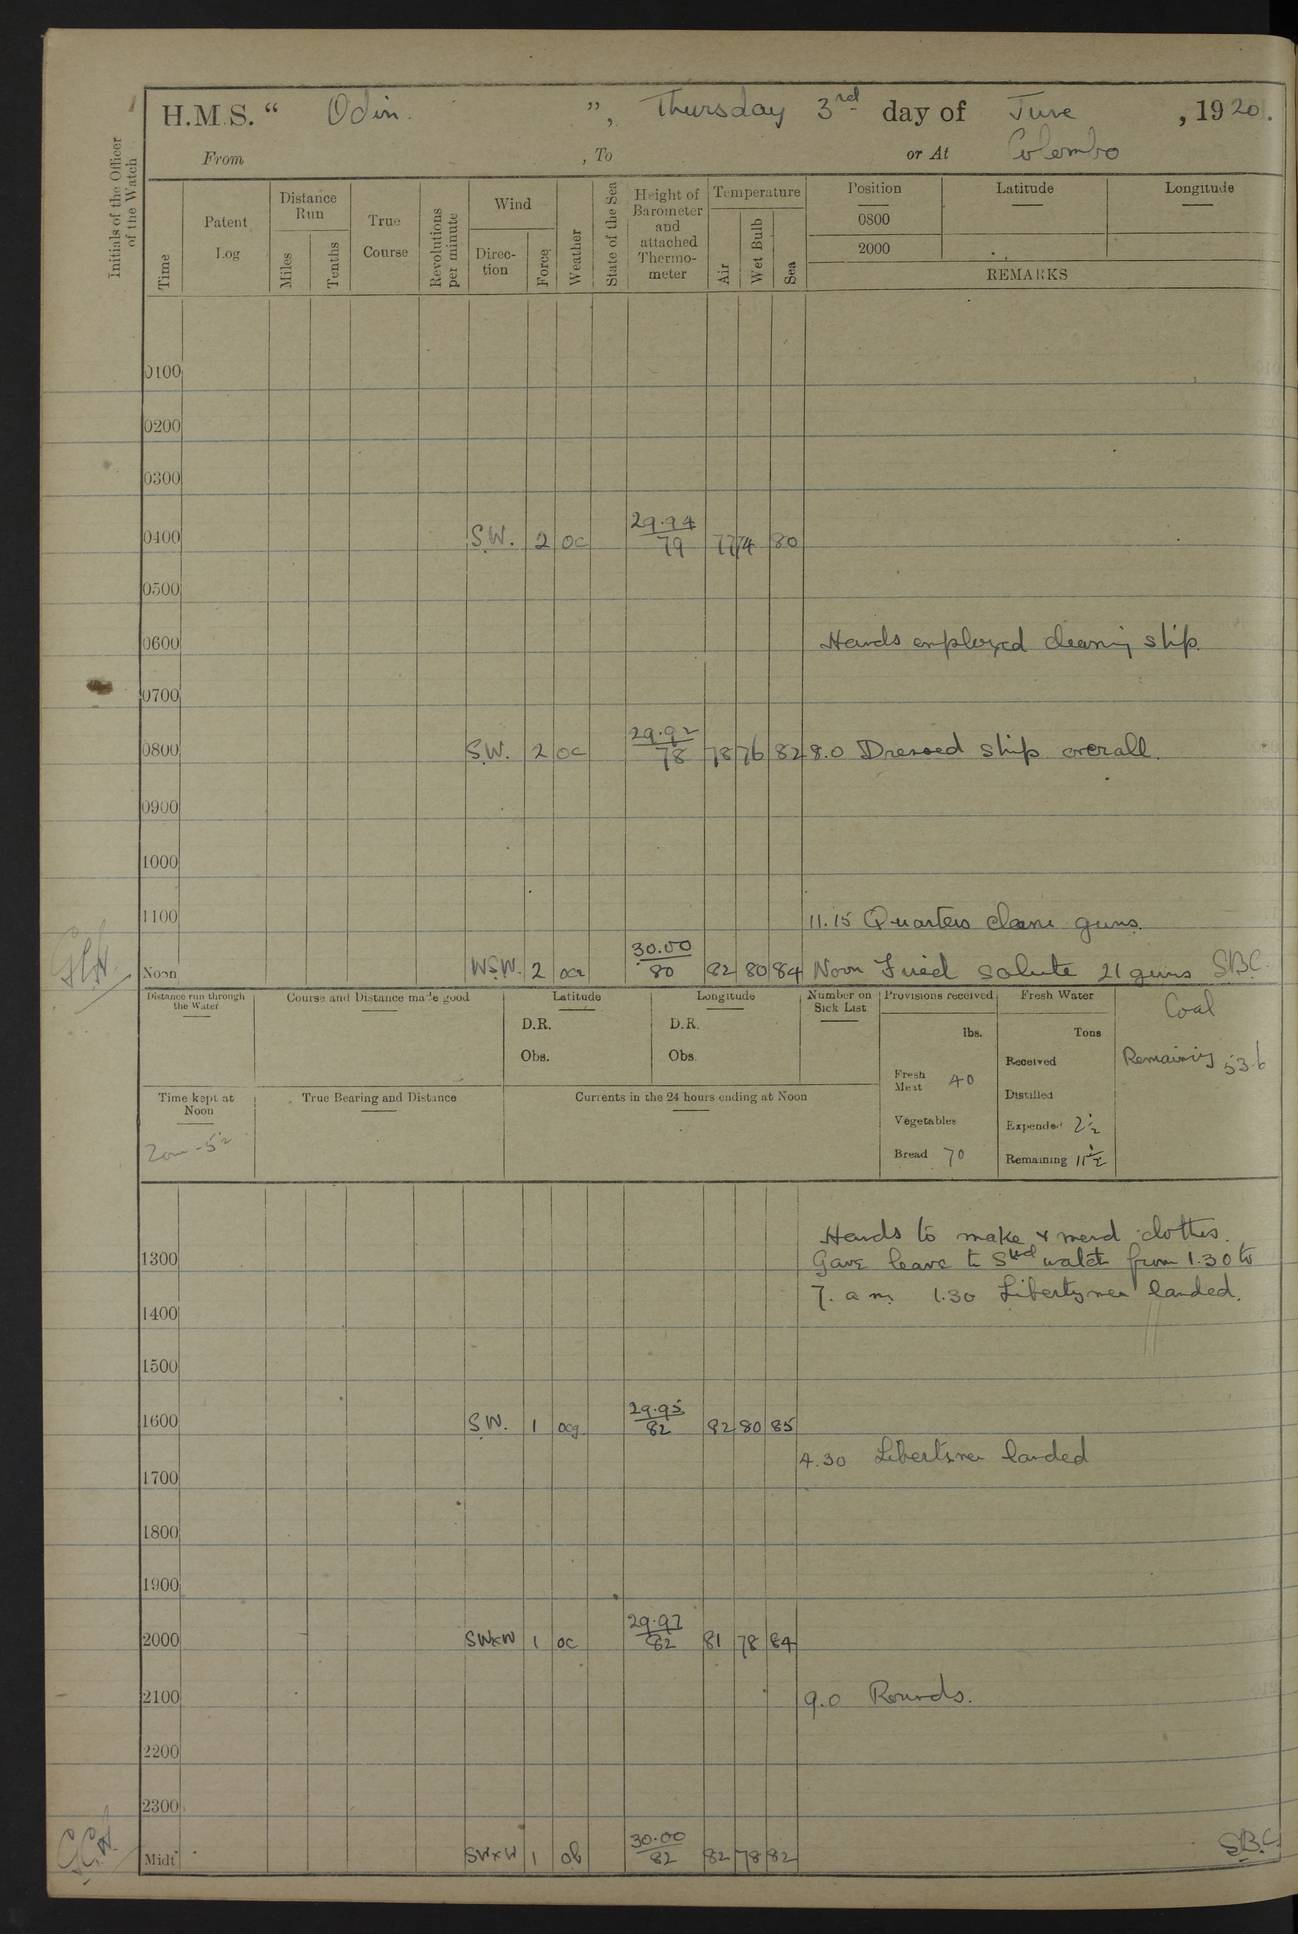 H.M.S. “ Odin. ”, Thursday 3rd day of June , 1920.
From , To or At Colombo
Initials of the Officer of the Watch
Time Patent Log Distance Run Miles Tenths True Course Revolutions per minute Wind Direction Force Weather State of the Sea Height of Barometer and attached Thermometer Temperature Air Wet Bulb Sea Position Latitude Longitude
0800
2000
REMARKS
0100
0200
0300
0400 S.W. 2 oc 29.94/79 77 74 80
0500
0600 Hands employed cleaning ship.
0700
0800 S.W. 2 oc 29.92/78 78 76 82 8.0 Dressed ship overall.
0900
1000
1100 11.15 Quarters clean guns.
Noon WSW. 2 ocr 30.00/80 82 80 84 Noon Fired salute 21 guns SBC.
Distance run through the Water Course and Distance made good Latitude Longitude Number on Sick List Provisions received Fresh Water Coal
D.R. D.R. lbs. Tons
Obs. Obs. Received Remaining 53.6
Fresh Meat 40 Distilled
Time kept at Noon True Bearing and Distance Currents in the 24 hours ending at Noon
Vegetables Expended 2½
Bread 70 Remaining 11½
Hands to make & mend clothes.
1300 Gave leave to Stbd watch from 1.30 to
7. a m. 1.30 Libertymen landed.
1400
1500
1600 S.W. 1 ocg. 29.95/82 82 80 85
4.30 Libertymen landed
1700
1800
1900
2000 SWxW 1 oc 29.97/82 81 78 84
2100 9.0 Rounds.
2200
2300
Midt SWxW 1 ob 30.00/82 82 78 82 SBC.